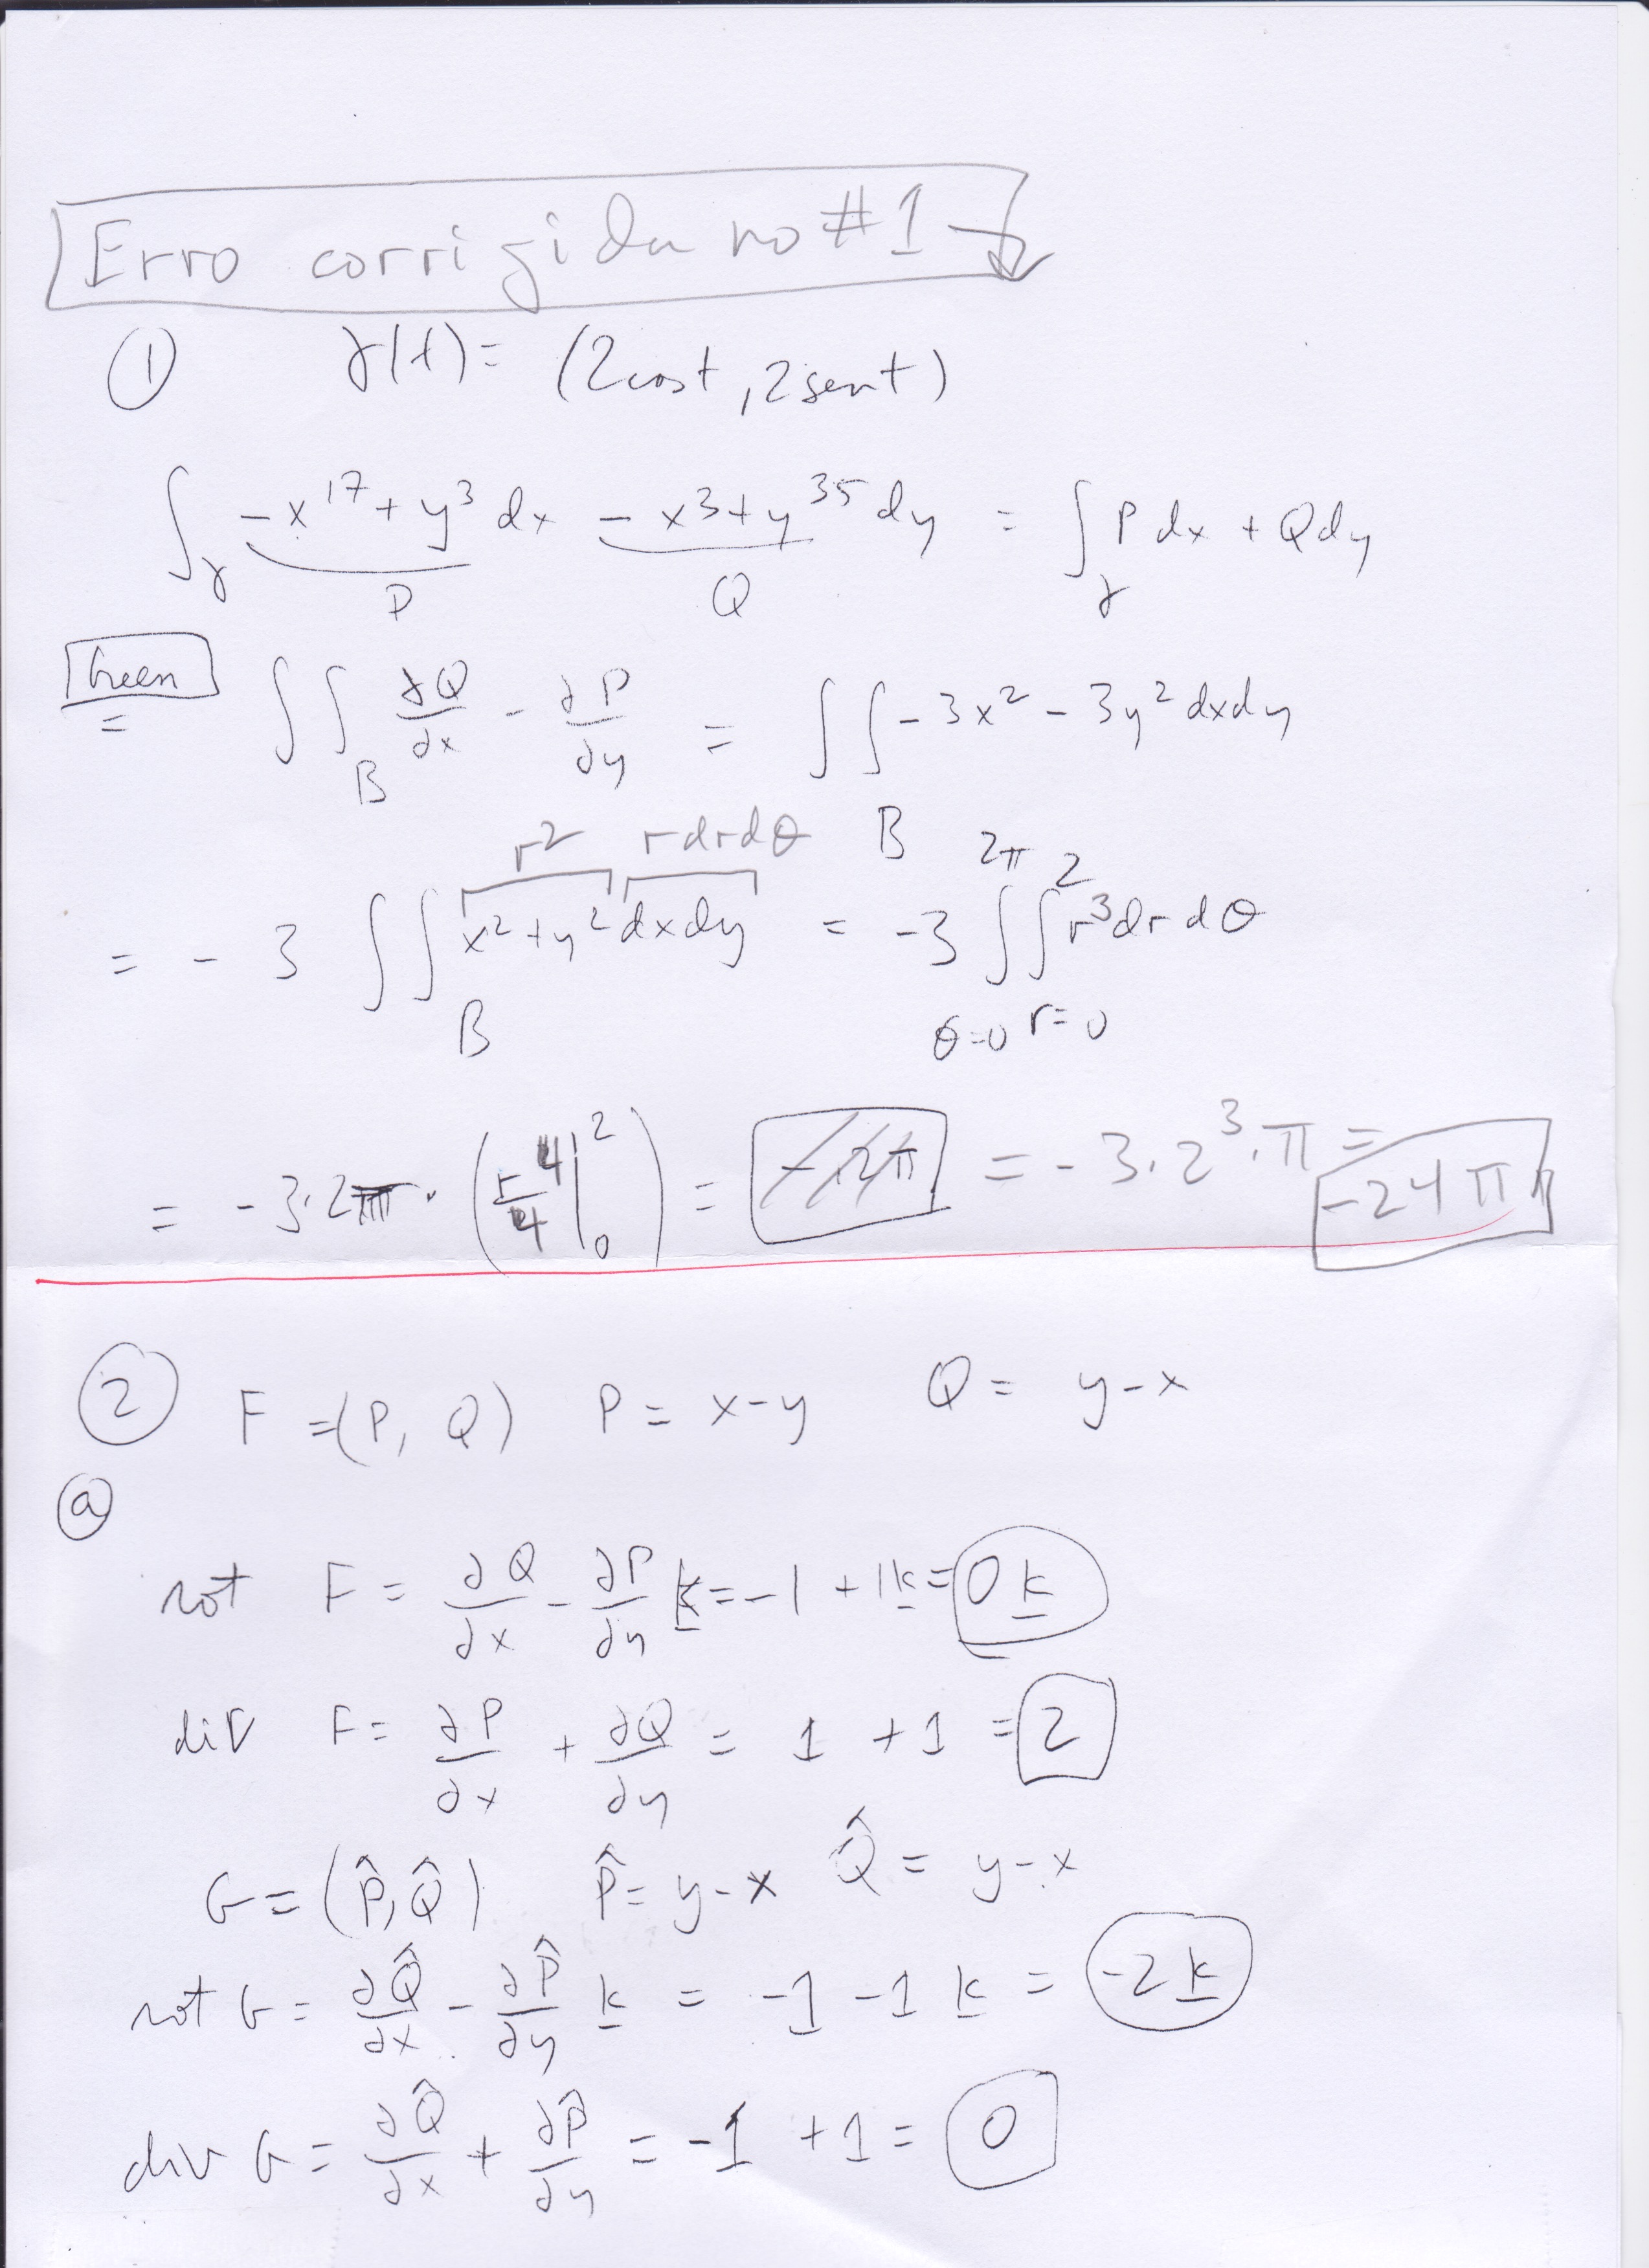 Erro corrigida no #1 →
① γ(t) = (2cost, 2sent)
∫_γ -x^17 + y^3 dx - x^3 + y^35 dy = ∫_γ P dx + Q dy
P Q
Green
= ∫∫_B ∂Q/∂x - ∂P/∂y = ∫∫_B -3x^2 - 3y^2 dxdy
r^2 rdrdθ
= -3 ∫∫_B x^2+y^2 dxdy = -3 ∫_{θ=0}^{2π} ∫_{r=0}^{2} r^3 dr dθ
= -3·2π · (r^4/4 |_0^2) = = -3·2^3·π = -24π
② F = (P, Q) P = x-y Q = y-x
ⓐ
rot F = ∂Q/∂x - ∂P/∂y k = -1 + 1k = 0k
div F = ∂P/∂x + ∂Q/∂y = 1 + 1 = 2
G = (P̂, Q̂) P̂ = y-x Q̂ = y-x
rot G = ∂Q̂/∂x - ∂P̂/∂y k = -1 -1 k = -2k
div G = ∂Q̂/∂x + ∂P̂/∂y = -1 +1 = 0